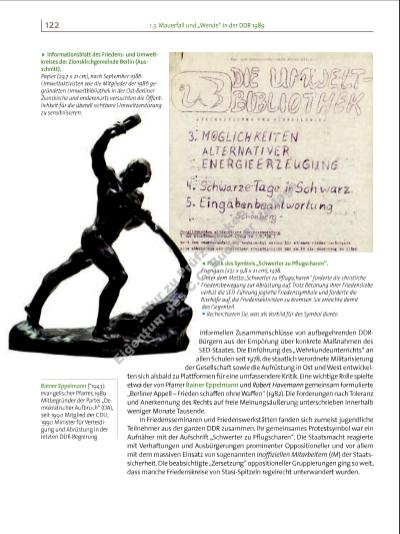 122
1.3 Mauerfall und „Wende“ in der DDR 1989
▸ Informationsblatt des Friedens- und Umwelt-
kreises der Zionskirchgemeinde Berlin (Aus-
schnitt).
Papier (29,7 x 21 cm), nach September 1986.
Umweltaktivisten wie die Mitglieder der 1986 ge-
gründeten Umweltbibliothek in der Ost-Berliner
Zionskirche und anderenorts versuchten die Öffent-
lichkeit für die überall sichtbare Umweltzerstörung
zu sensibilisieren.
DIE UMWELT-
BIBLIOTHEK
3. MÖGLICHKEITEN
ALTERNATIVER
ENERGIEERZEUGUNG
4. Schwarze Tage in Schwarz
5. Eingabenbeantwortung
- Schönberg -
Plastik des Symbols „Schwerter zu Pflugscharen“.
Unter dem Motto „Schwerter zu Pflugscharen“ forderte die christliche
Friedensbewegung zur Abrüstung auf. Trotz Betonung ihrer Friedensliebe
verbot die SED-Führung jegliche Friedenssymbole und forderte die
Bischöfe auf, die Friedensaktivisten zu bremsen. Sie erreichte damit
das Gegenteil.
▪ Recherchieren Sie, was als Vorbild für das Symbol diente.
informellen Zusammenschlüsse von aufbegehrenden DDR-
Bürgern aus der Empörung über konkrete Maßnahmen des
SED-Staates. Die Einführung des „Wehrkundeunterrichts“ an
allen Schulen seit 1978, die staatlich verordnete Militarisierung
der Gesellschaft sowie die Aufrüstung in Ost und West entwickel-
ten sich alsbald zu Plattformen für eine umfassendere Kritik. Eine wichtige Rolle spielte
etwa der von Pfarrer Rainer Eppelmann und Robert Havemann gemeinsam formulierte
„Berliner Appell – Frieden schaffen ohne Waffen“ (1982). Die Forderungen nach Toleranz
und Anerkennung des Rechts auf freie Meinungsäußerung unterschrieben innerhalb
weniger Monate Tausende.
Rainer Eppelmann (*1943):
evangelischer Pfarrer, 1989
Mitbegründer der Partei „De-
mokratischer Aufbruch“ (DA),
seit 1990 Mitglied der CDU,
1990 Minister für Verteidi-
gung und Abrüstung in der
letzten DDR-Regierung
In Friedensseminaren und Friedenswerkstätten fanden sich zumeist jugendliche
Teilnehmer aus der ganzen DDR zusammen. Ihr gemeinsames Protestsymbol war ein
Aufnäher mit der Aufschrift „Schwerter zu Pflugscharen“. Die Staatsmacht reagierte
mit Verhaftungen und Ausbürgerungen prominenter Oppositioneller und vor allem
mit dem massiven Einsatz von sogenannten Inoffiziellen Mitarbeitern (IM) der Staats-
sicherheit. Die beabsichtigte „Zersetzung“ oppositioneller Gruppierungen ging so weit,
dass manche Friedenskreise von Stasi-Spitzeln regelrecht unterwandert wurden.